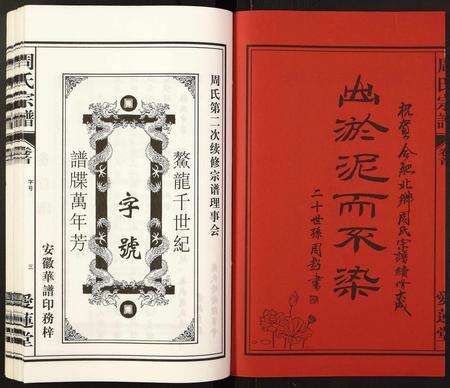 祝賀合肥北鄉周氏宗譜續修大成
出淤泥而不染
二十世孫周毅書
周氏宗譜
愛蓮堂
周氏第二次续修宗谱理事会
鰲龍千世紀
字號
譜牒萬年芳
安徽華譜印務梓
周氏宗譜
卷首
字号
三
愛蓮堂